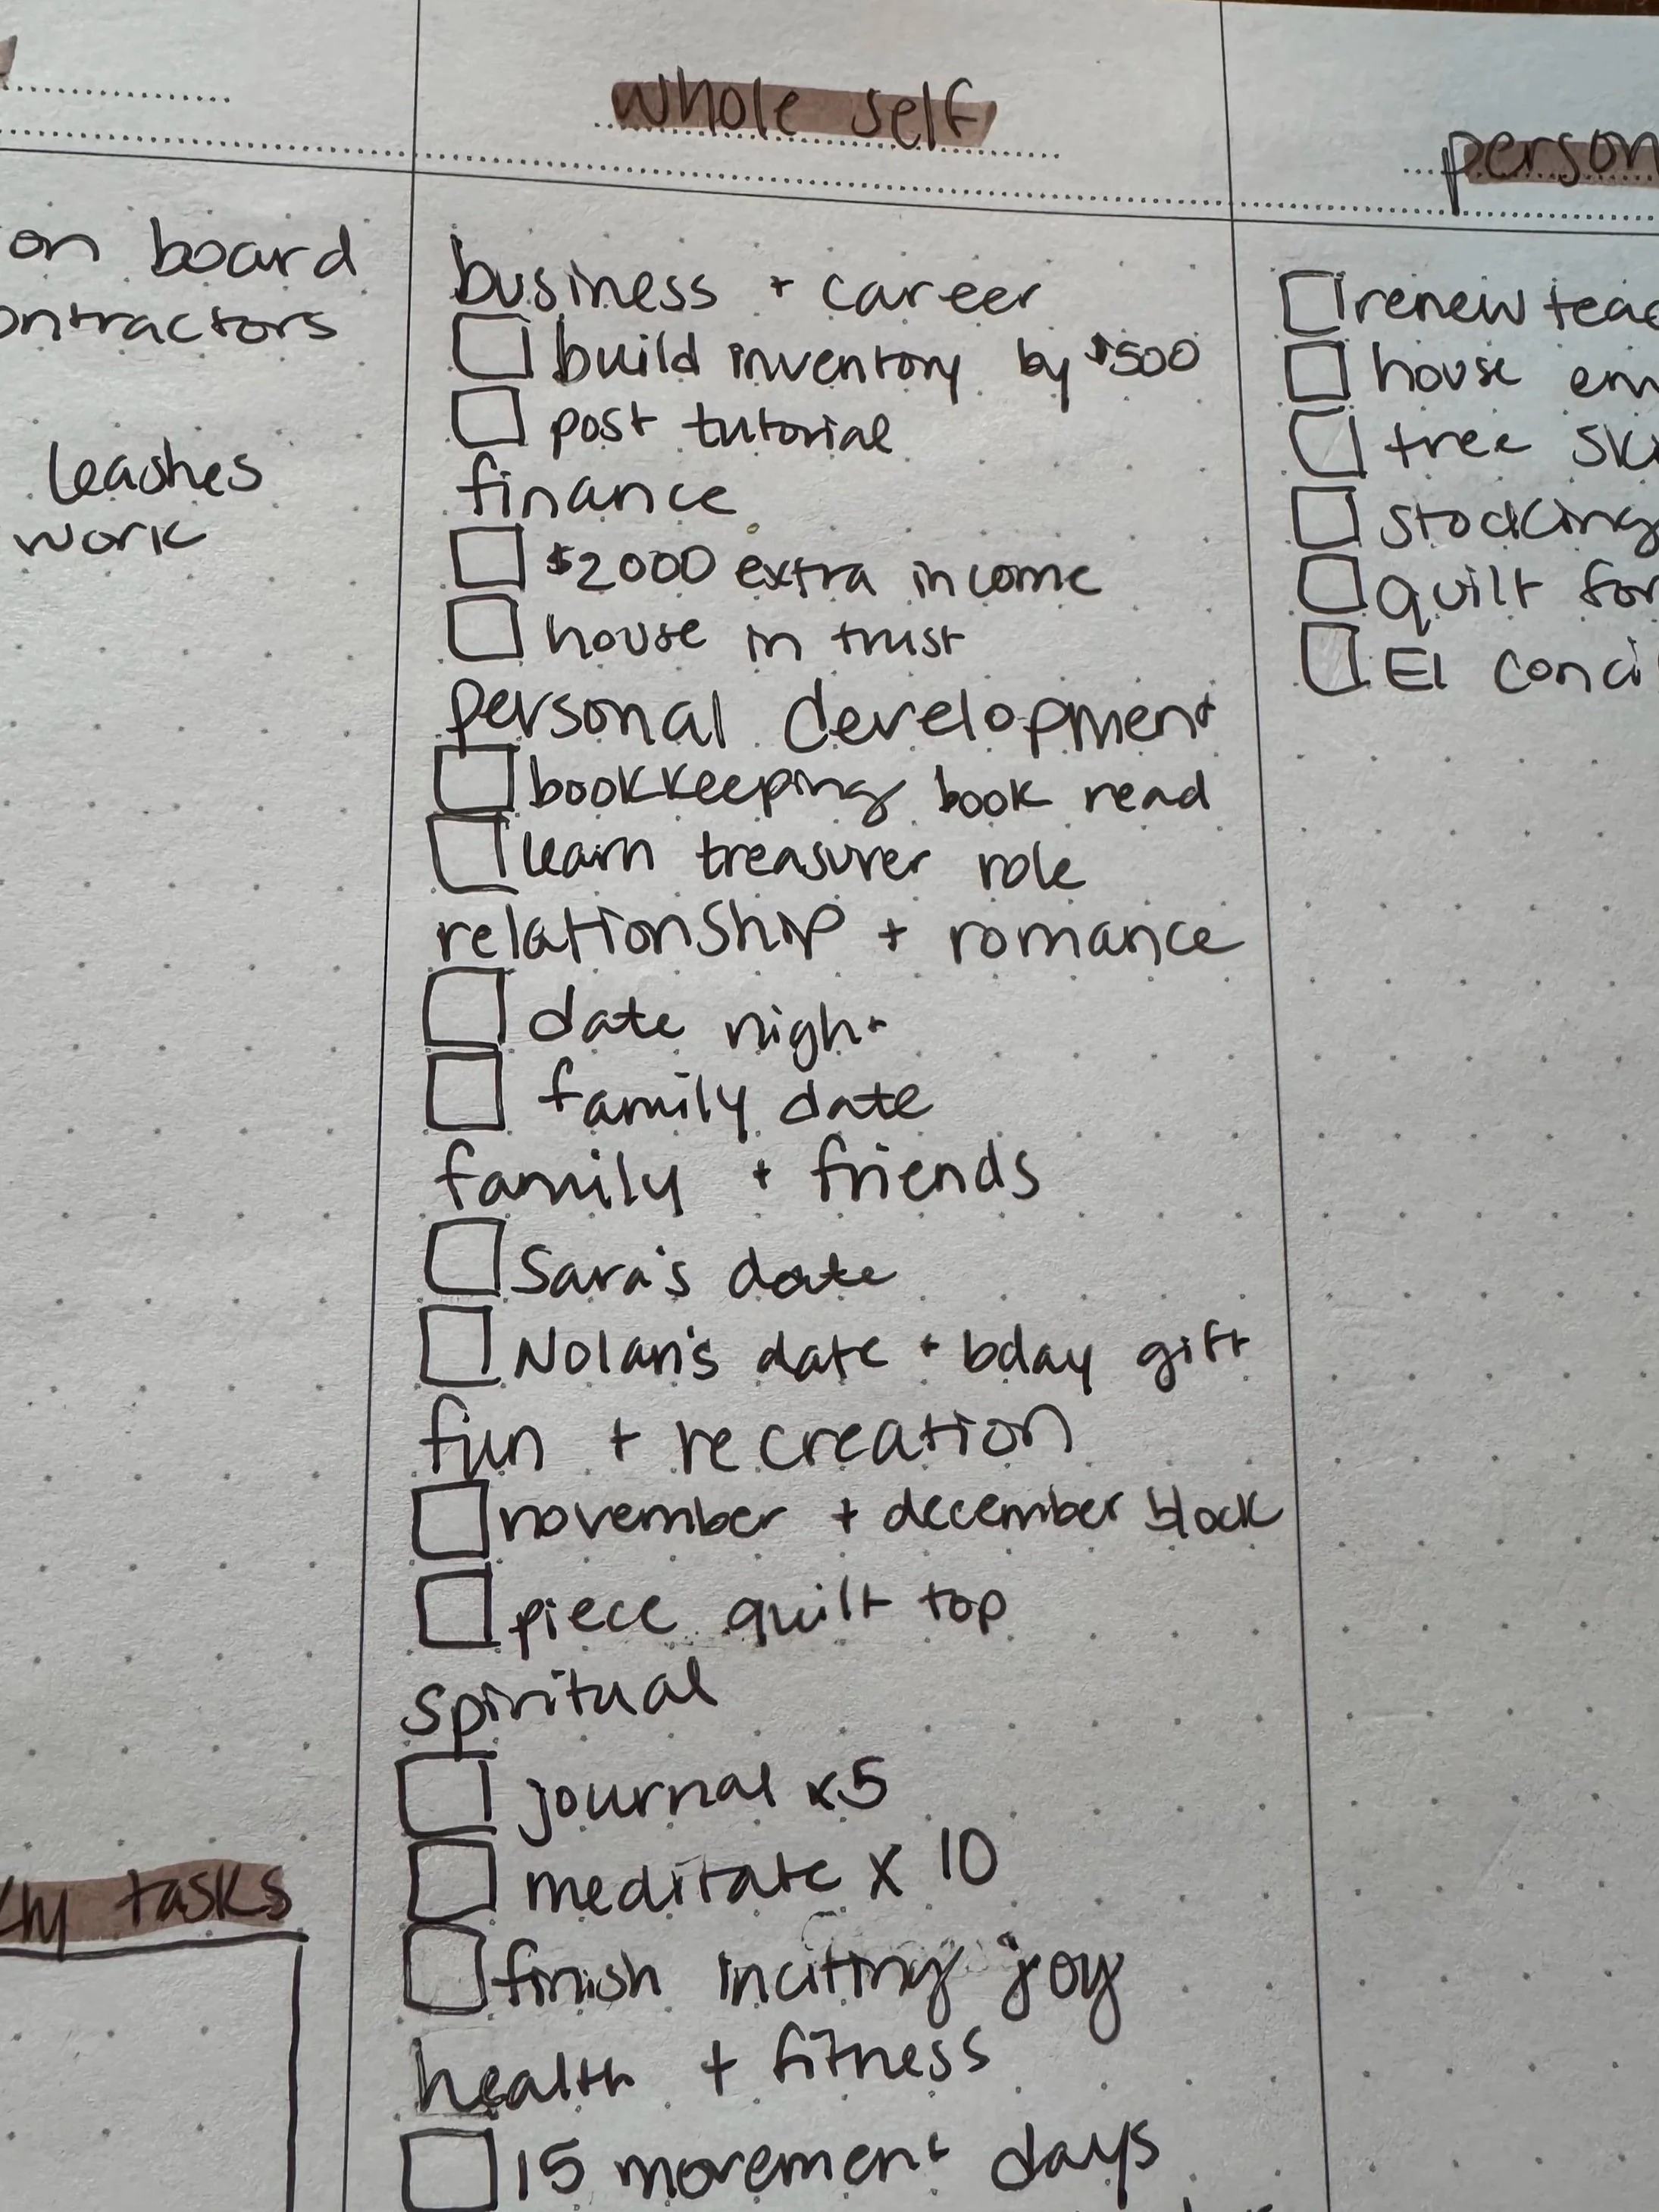 whole self
on board
leashes
work
business + career
build inventory by $500
post tutorial
finance
$2000 extra income
house in trust
personal development
bookkeeping book read
learn treasurer role
relationship + romance
date night
family date
family + friends
Sara's date
Nolan's date + bday gift
fun + recreation
november + december block
piece quilt top
spiritual
journal x5
meditate x 10
finish inciting joy
health + fitness
15 movement days
tasks
renew
house
tree
stocking
quilt for
EI